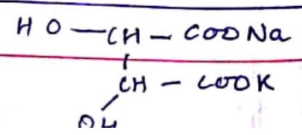 HO—CH—COONa
CH—COOK
OH